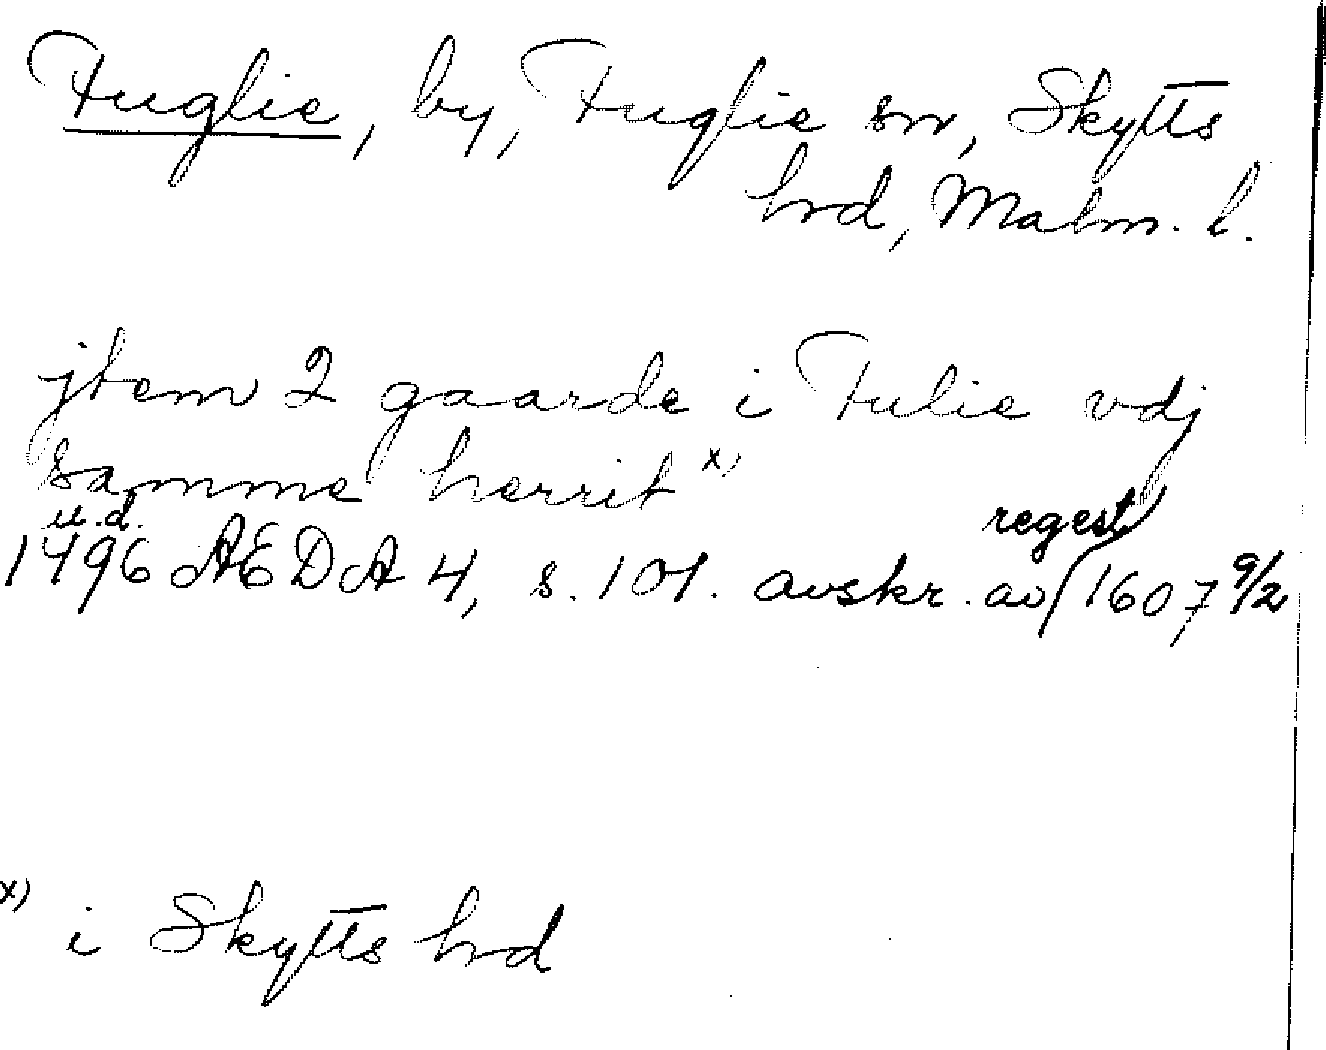 Fuglie, by, Fuglie sn, Skytts
hrd, Malm. l.
jtem 2 gaarde i Fulie vdj
samme herrit x)
u.d.
regest
1496 AEDA 4, s. 101. avskr. av 1607 9/2
x) i Skytts hrd